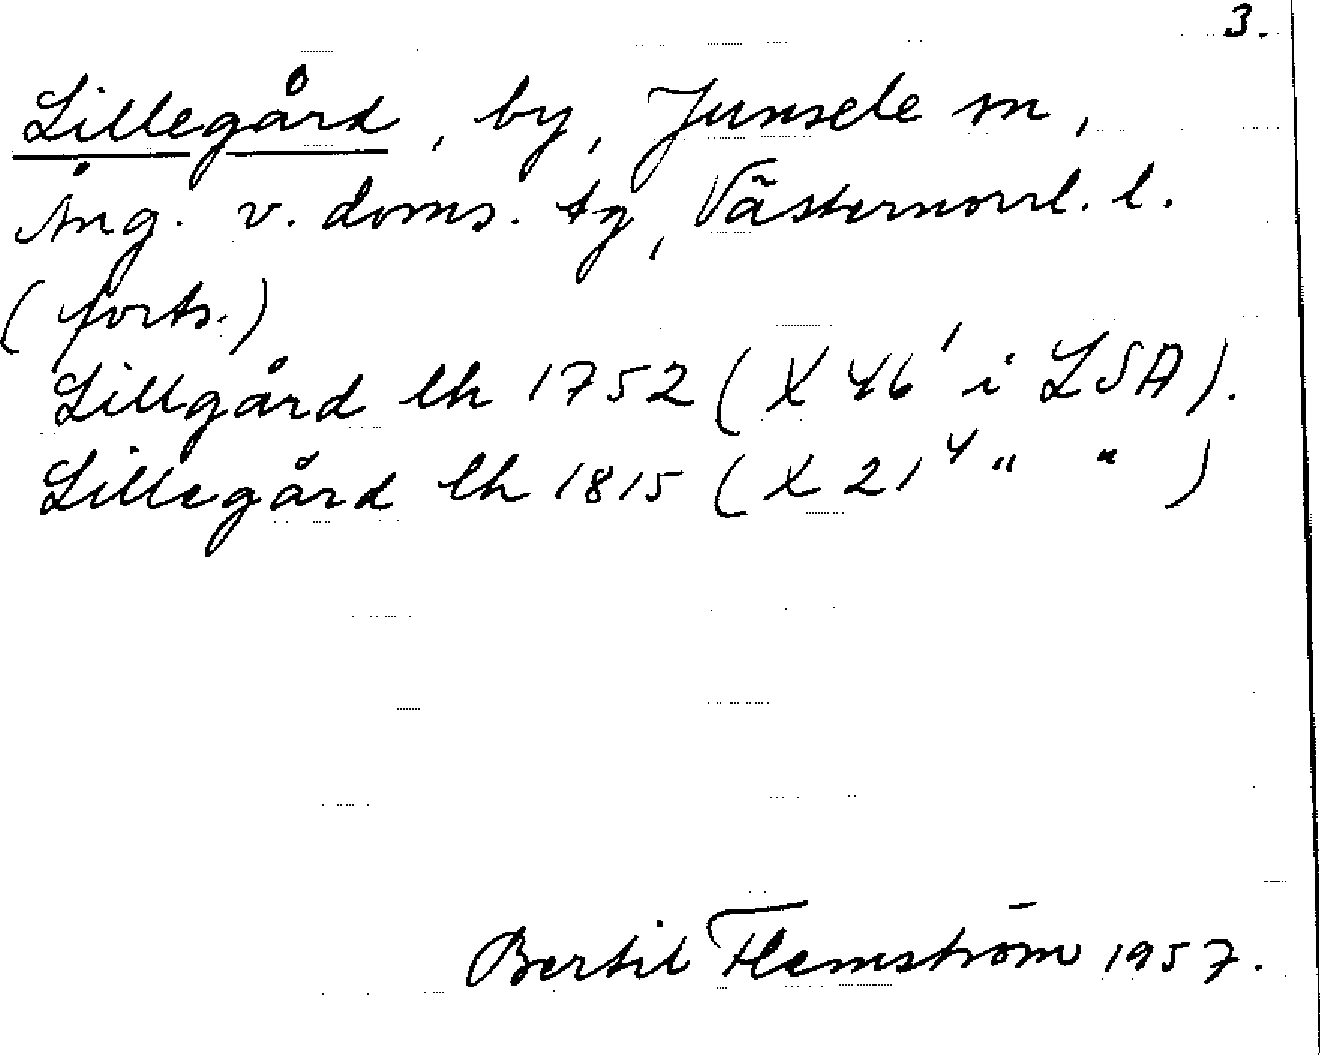 3.
Lillegård, by, Junsele sn,
Ång. v. doms. tg, Västernorrl. l.
(forts.)
Lillgård lh 1752 (X 46¹ i LSA).
Lillegård lh 1815 (X 21⁴ " " )
Bertil Flemström 1957.